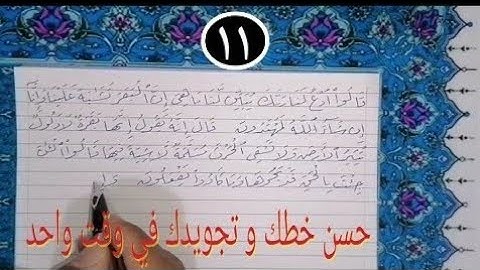 ١١
قَالُوا۟ ٱدْعُ لَنَا رَبَّكَ يُبَيِّن لَّنَا مَا هِىَ إِنَّ ٱلْبَقَرَ تَشَٰبَهَ عَلَيْنَا وَإِنَّآ
إِن شَآءَ ٱللَّهُ لَمُهْتَدُونَ قَالَ إِنَّهُۥ يَقُولُ إِنَّهَا بَقَرَةٌ لَّا ذَلُولٌ
تُثِيرُ ٱلْأَرْضَ وَلَا تَسْقِى ٱلْحَرْثَ مُسَلَّمَةٌ لَّا شِيَةَ فِيهَا قَالُوا۟ ٱلْـَٰٔنَ
جِئْتَ بِٱلْحَقِّ فَذَبَحُوهَا وَمَا كَادُوا۟ يَفْعَلُونَ
حسن خطك و تجويدك في وقت واحد